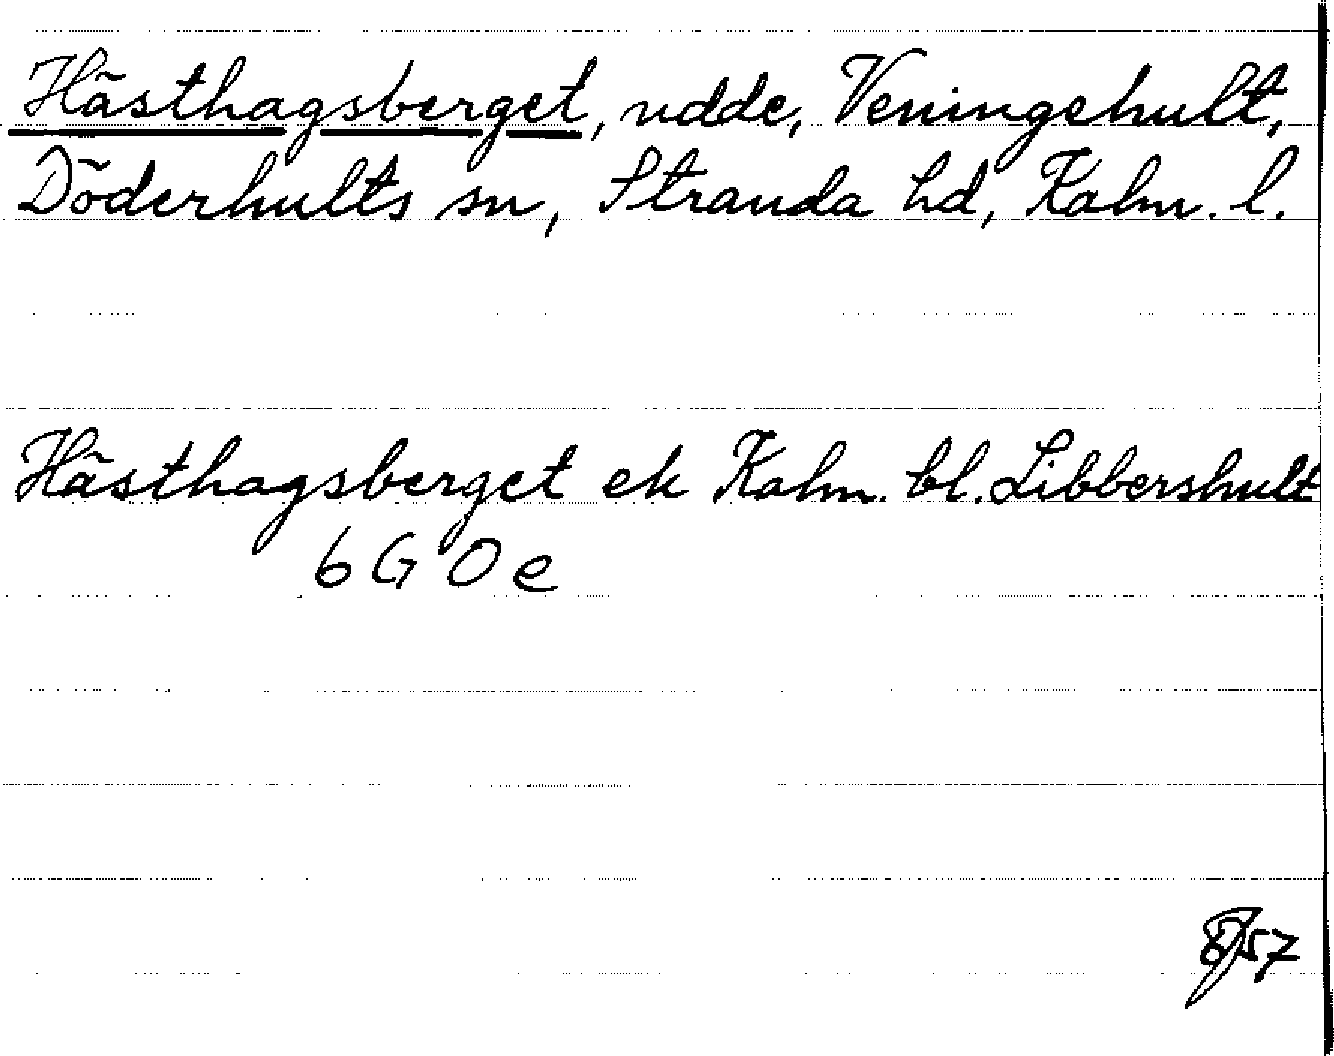 Hästhagsberget, udde, Veningehult,
Döderhults sn, Stranda hd, Kalm. l.
Hästhagsberget ek Kalm. bl. Libbershult
6 G 0 e
57